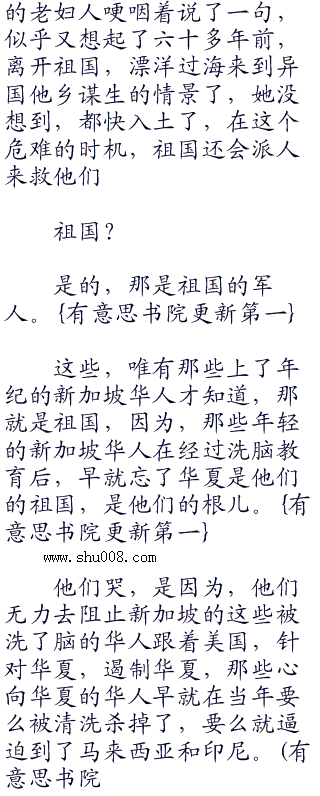 的老妇人哽咽着说了一句，
似乎又想起了六十多年前，
离开祖国，漂洋过海来到异
国他乡谋生的情景了，她没
想到，都快入土了，在这个
危难的时机，祖国还会派人
来救他们
祖国？
是的，那是祖国的军
人。{有意思书院更新第一}
这些，唯有那些上了年
纪的新加坡华人才知道，那
就是祖国，因为，那些年轻
的新加坡华人在经过洗脑教
育后，早就忘了华夏是他们
的祖国，是他们的根儿。{有
意思书院更新第一}
www.shu008.com
他们哭，是因为，他们
无力去阻止新加坡的这些被
洗了脑的华人跟着美国，针
对华夏，遏制华夏，那些心
向华夏的华人早就在当年要
么被清洗杀掉了，要么就逼
迫到了马来西亚和印尼。(有
意思书院